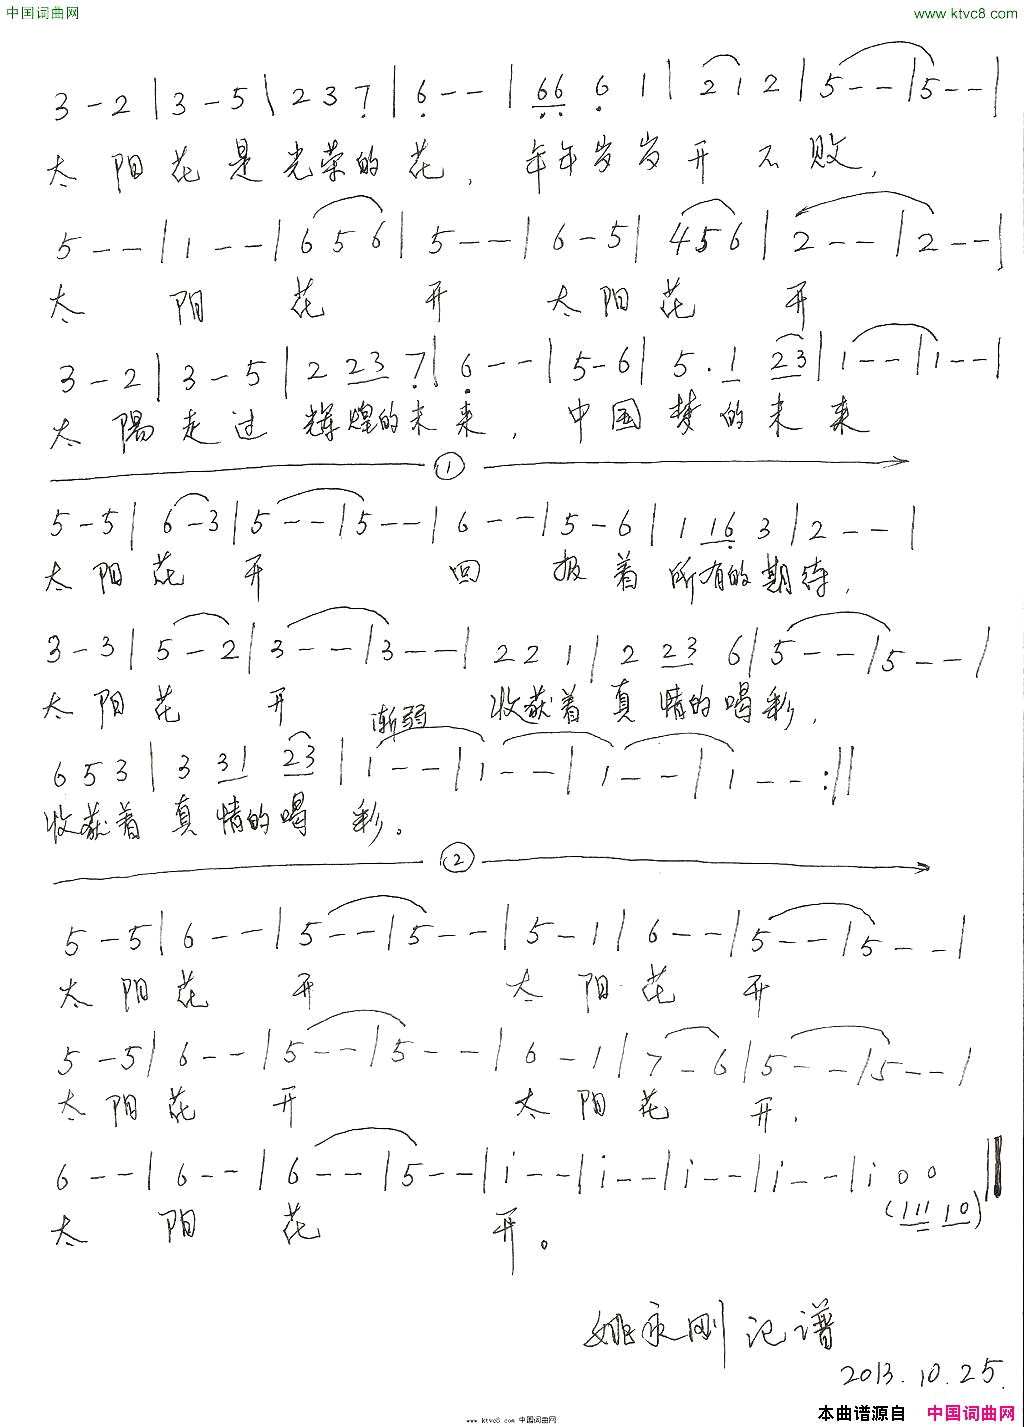 中国词曲网 www.ktvc8.com
3 - 2 | 3 - 5 | 2 3 7̣ | 6̣ - - | 6̣6̣ 6̣ 1 | 2 1 2 | 5 - - | 5 - - |
太 阳 花 是 光 荣 的 花, 年年岁岁 开 不 败,
5 - - | 1 - - | 6 5 6 | 5 - - | 6 - 5 | 4 5 6 | 2 - - | 2 - - |
太 阳 花 开 太 阳 花 开
3 - 2 | 3 - 5 | 2 23 7̣ | 6̣ - - | 5 - 6 | 5 . 1 23 | 1 - - | 1 - - |
太 陽 走 过 辉煌的未来, 中 国 梦 的 未 来
①
5 - 5 | 6 - 3 | 5 - - | 5 - - | 6 - - | 5 - 6 | 1 16̣ 3 | 2 - - |
太 阳 花 开 回 报 着 所有的期待,
3 - 3 | 5 - 2 | 3 - - | 3 - - | 2 2 1 | 2 23 6 | 5 - - | 5 - - |
太 阳 花 开 收获着 真 情的喝彩,
渐弱
6 5 3 | 3 31 23 | 1 - - | 1 - - | 1 - - | 1 - - :||
收获着 真 情的喝 彩。
②
5 - 5 | 6 - - | 5 - - | 5 - - | 5 - 1 | 6 - - | 5 - - | 5 - - |
太 阳 花 开 太 阳 花 开
5 - 5 | 6 - - | 5 - - | 5 - - | 6 - 1 | 7 - 6 | 5 - - | 5 - - |
太 阳 花 开 太 阳 花 开.
6 - - | 6 - - | 6 - - | 5 - - | i - - | i - - | i - - | i - - | i 0 0 ||
(111 10)
太 阳 花 开。
姚永刚 记谱
2013.10.25.
本曲谱源自 中国词曲网
www.ktvc8.com 中国词曲网